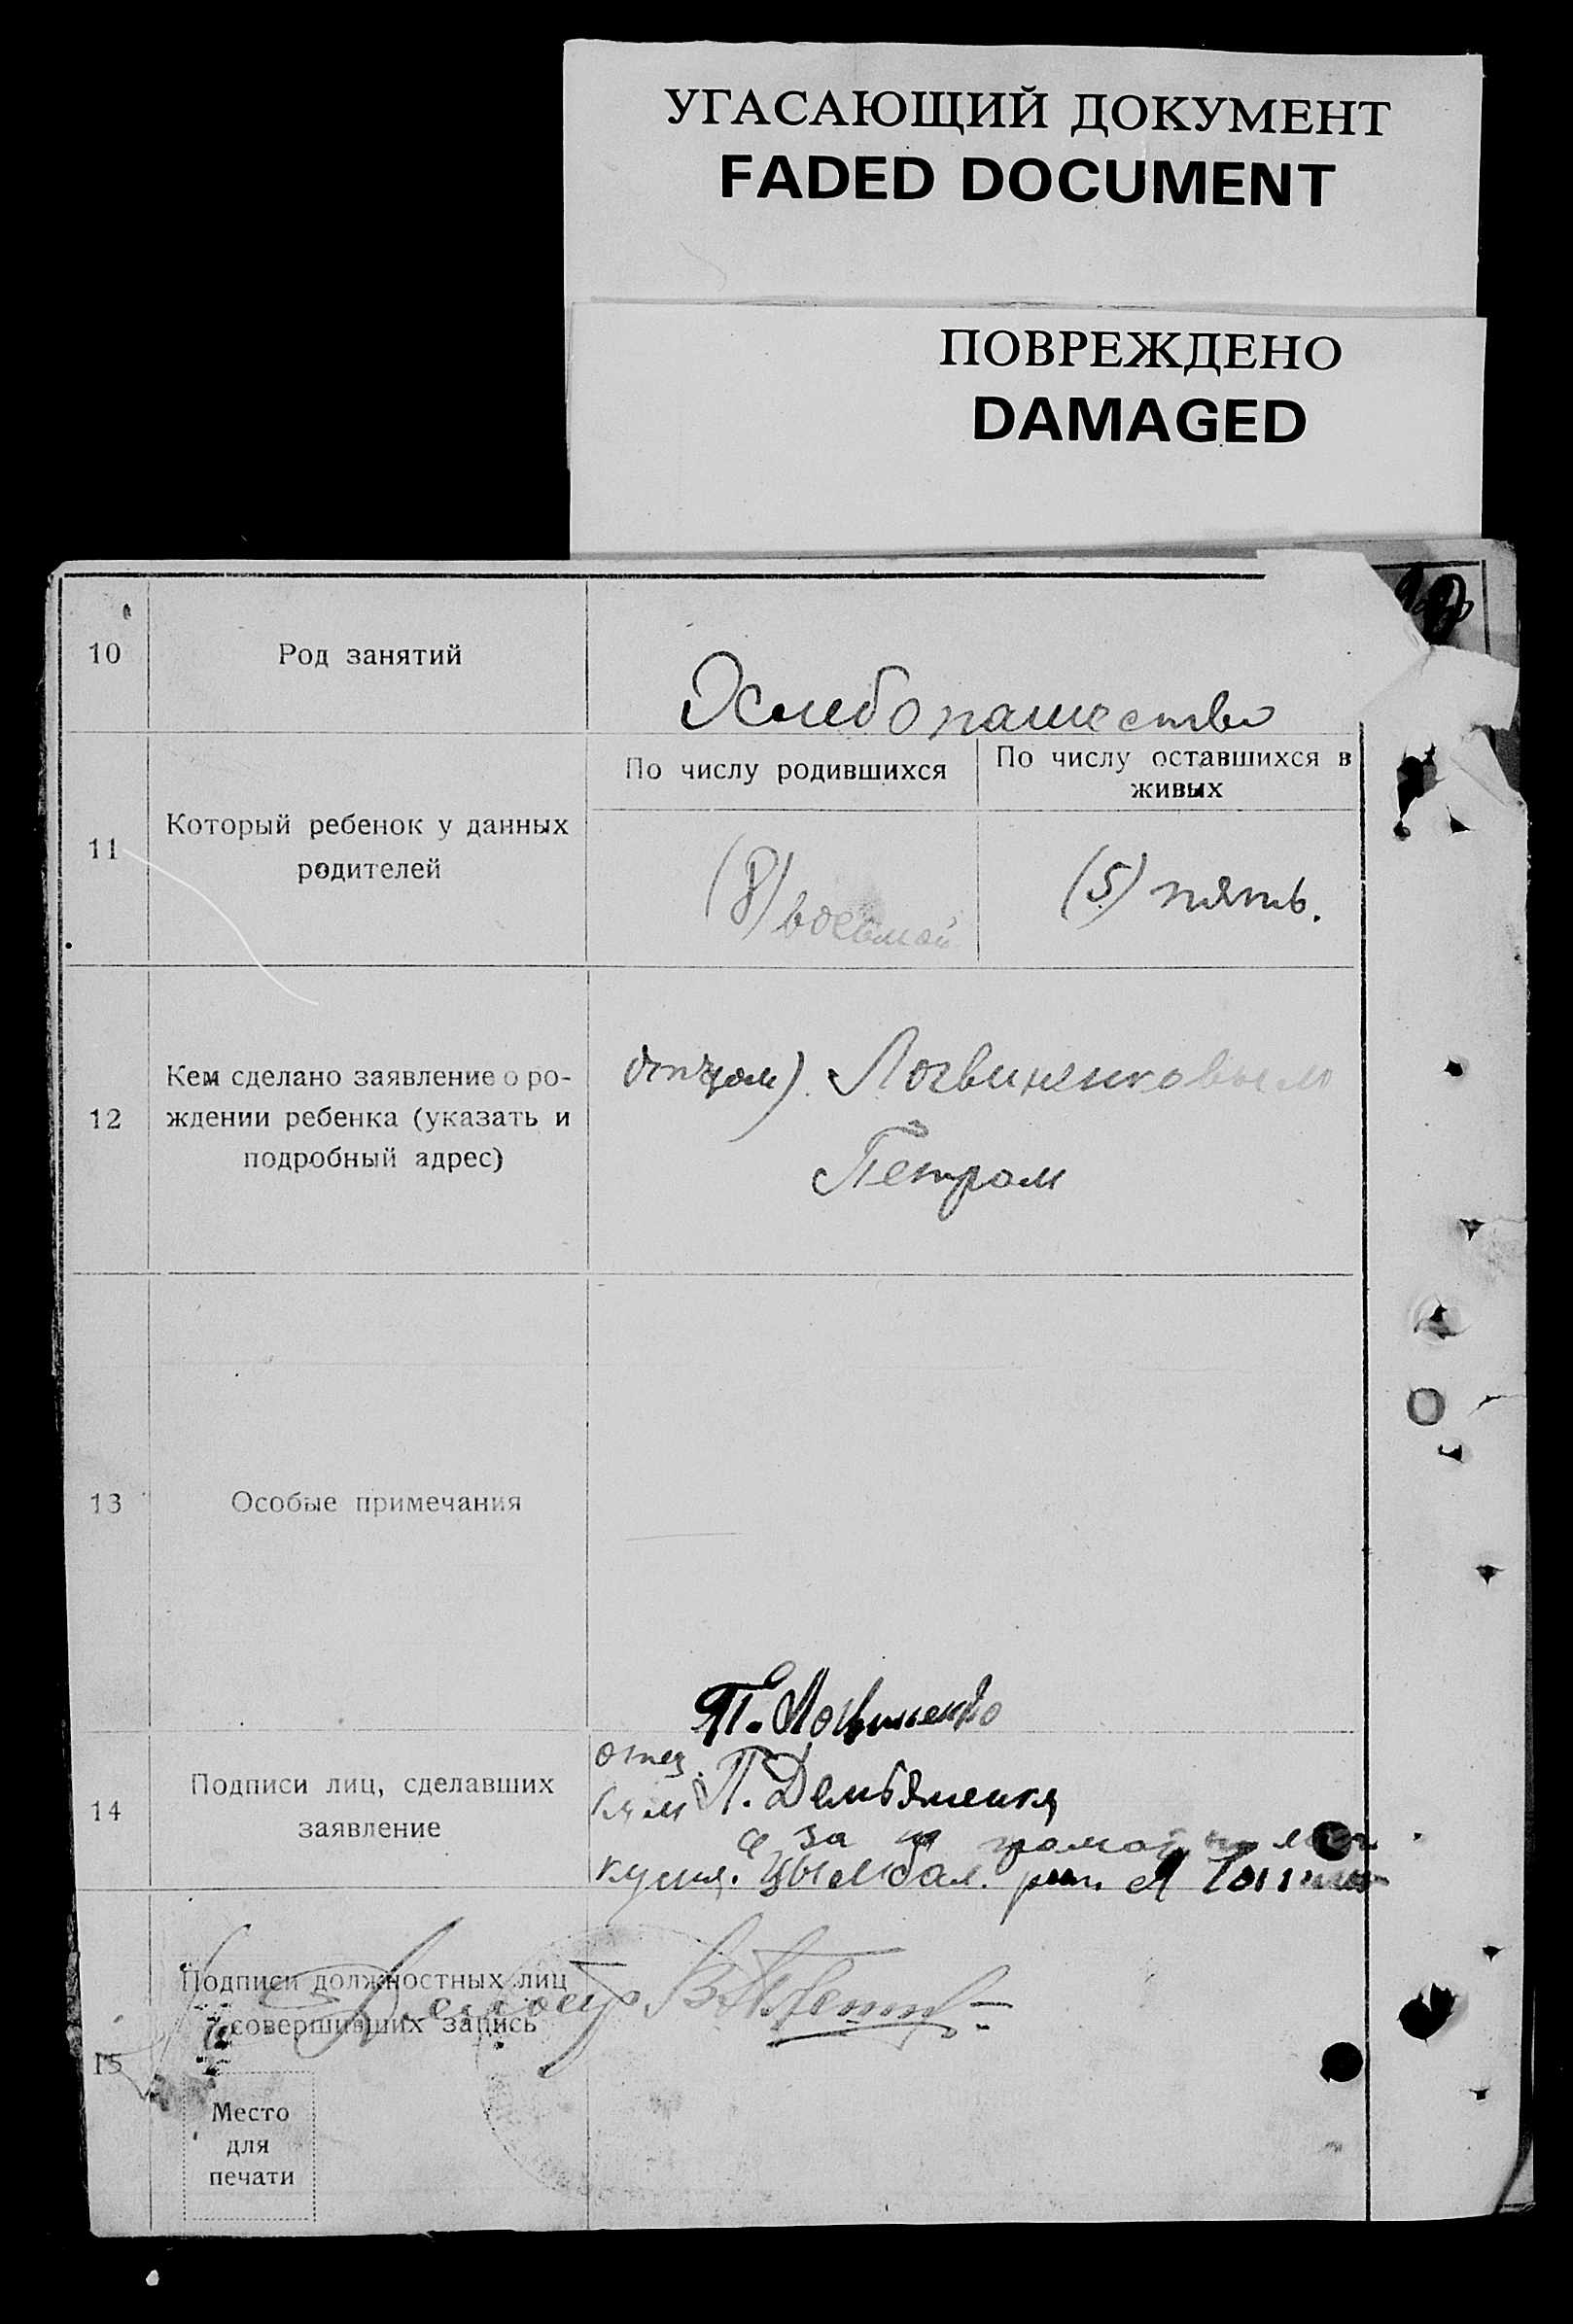 УГАСАЮЩИЙ ДОКУМЕНТ
FADED DOCUMENT
ПОВРЕЖДЕНО
DAMAGED
10
Род занятий
Хлебопашество
11
Который ребенок у данных
родителей
По числу родившихся
(8) восьмой
По числу оставшихся в
живых
(5) пять.
12
Кем сделано заявление о ро-
ждении ребенка (указать и
подробный адрес)
отцом). Логвиненковым
Петром
13
Особые примечания
П. Логвиненко
14
Подписи лиц, сделавших
заявление
отец
П. Демьяненко
за
15
Подписи должностных лиц
совершивших запись
Место
для
печати